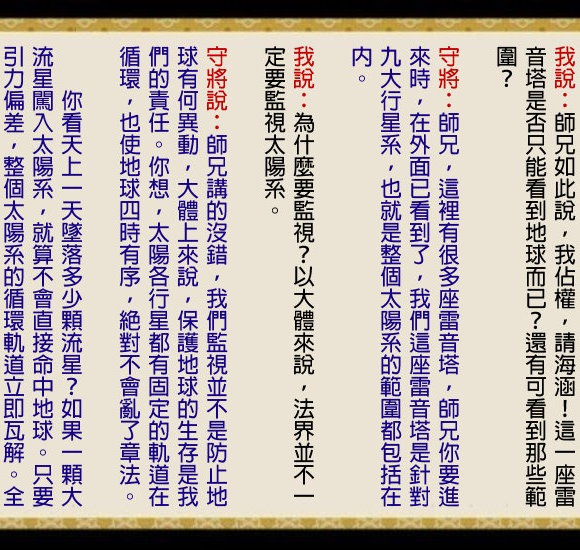 我說：師兄如此說，我佔權，請海涵！這一座雷
音塔是否只能看到地球而已？還有可看到那些範
圍？
守將：師兄，這裡有很多座雷音塔，師兄你要進
來時，在外面已看到了，我們這座雷音塔是針對
九大行星系，也就是整個太陽系的範圍都包括在
內。
我說：為什麼要監視？以大體來說，法界並不一
定要監視太陽系。
守將說：師兄講的沒錯，我們監視並不是防止地
球有何異動，大體上來說，保護地球的生存是我
們的責任。你想，太陽各行星都有固定的軌道在
循環，也使地球四時有序，絕對不會亂了章法。
你看天上一天墜落多少顆流星？如果一顆大
流星闖入太陽系，就算不會直接命中地球。只要
引力偏差，整個太陽系的循環軌道立即瓦解。全